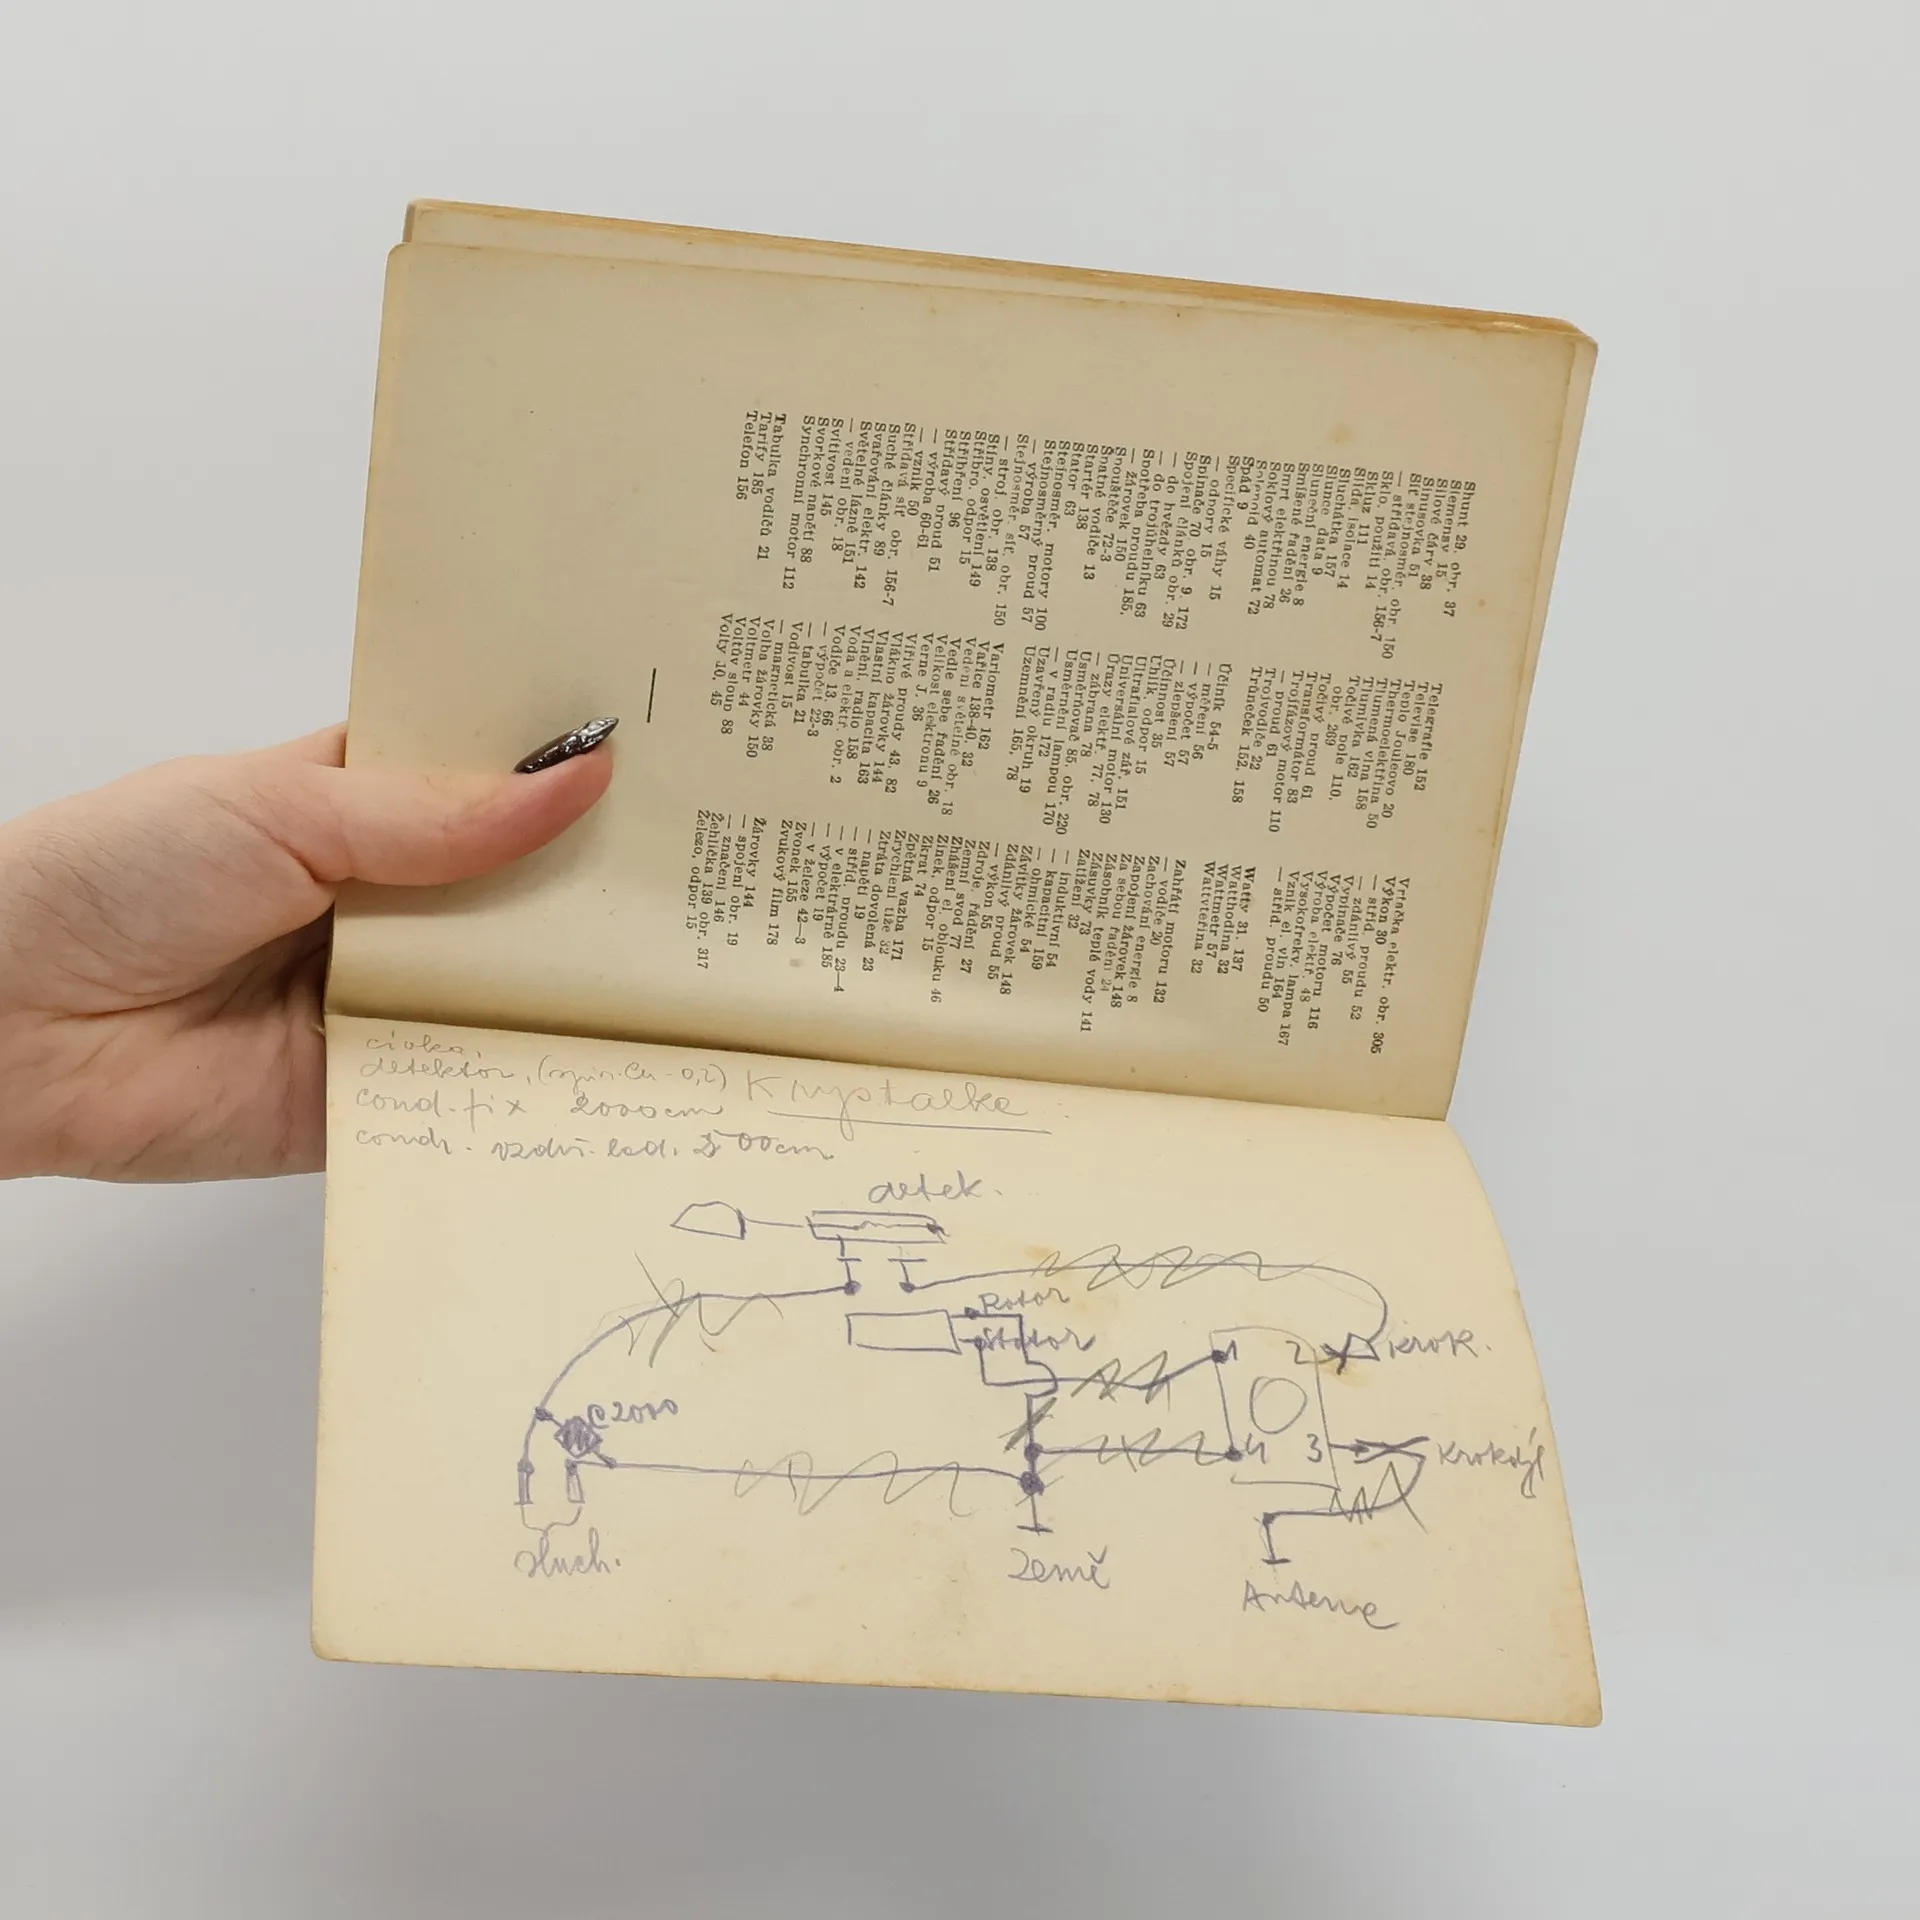 Shunt 29. obr. 37
Siemensav 15
Silové čáry 38
Sinusovka 51
Síť stejnosměr. obr. 150
— střídavá, obr. 156-7
Sklo, použití 14
Skluz 111
Slída, isolace 14
Sluchátka 157
Slunce data 9
Sluneční energie 8
Smíšené řadění 26
Smrt elektřinou 78
Soklový automat 72
Solenoid 40
Spád 9
Specifické váhy 15
— odpory 15
Spínače 70, obr. 9, 172
Spojení článků obr. 29
— do hvězdy 63
— do trojúhelníku 63
Spotřeba proudu 185,
— žárovek 150
Spouštěče 72-3
Špatné vodiče 13
Startér 138
Stator 63
Stejnosměr. motory 100
— výroba 57
Stejnosměrný proud 57
Stejnosměr. síť, obr. 150
— stroj, obr. 138
Stíny, osvětlení 149
Stříbro, odpor 15
Stříbření 96
Střídavý proud 51
— výroba 60-61
— vznik 50
Střídavá síť, obr. 156-7
Suché články 89
Svařování elektr. 142
Světelné lázně 151
— vedení obr. 18
Svítivost 145
Svorkové napětí 88
Synchronní motor 112
Tabulka vodičů 21
Tarify 185
Telefon 156
Telegrafie 152
Televise 180
Teplo Jouleovo 20
Thermoelektřina 50
Tlumená vlna 158
Tlumivka 162
Točivé pole 110,
obr. 269
Točivý proud 61
Transformátor 83
Trojfázový motor 110
— proud 61
Trojvodiče 22
Trůneček 152, 158
Účiník 54-5
— měření 56
— výpočet 57
— zlepšení 57
Účinnost 35
Uhlík, odpor 15
Ultrafialové zář. 151
Universální motor 130
Úrazy elektř. 77, 78
— zábrana 78
Usměrňovač 85, obr. 220
Usměrnění lampou 170
— v radiu 172
Uzavřený okruh 19
Uzemnění 165, 78
Variometr 162
Vařiče 138-40, 32
Vedení světelné obr. 18
Vedle sebe řadění 26
Velikost elektronu 9
Verne J. 36
Vířivé proudy 43, 82
Vlákno žárovky 144
Vlastní kapacita 163
Vlnění, radio 158
Voda a elektř. obr. 2
Vodiče 13, 66
— výpočet 22-3
— tabulka 21
Vodivost 15
— magnetická 38
Volba žárovky 150
Voltmetr 44
Voltův sloup 88
Volty 10, 45
Vrtačka elektr. obr. 305
Výkon 30
— stříd. proudu 52
— zdánlivý 55
Vypínače 76
Výpočet motoru 116
Výroba elektř. 48
Vysokofrekv. lampa 167
Vznik el. vln 164
— stříd. proudu 50
Watty 31, 137
Watthodina 32
Wattmetr 57
Wattvteřina 32
Zahřátí motoru 132
— vodiče 20
Zachování energie 8
Zapojení žárovek 148
Za sebou řadění 24
Zásobník teplé vody 141
Zásuvky 73
Zatížení 32
— induktivní 54
— kapacitní 159
— ohmické 54
Závitky žárovek 148
Zdánlivý proud 55
— výkon 55
Zdroje, řadění 27
Zemní svod 77
Zhášení el. oblouku 46
Zinek, odpor 15
Zkrat 74
Zpětná vazba 171
Zrychlení tíže 32
Ztráta dovolená 23
— napětí 19
— stříd. proudu 23—4
— v elektrárně 185
— výpočet 19
— v železe 42—3
Zvonek 155
Zvukový film 178
Žárovky 144
— spojení obr. 19
— značení 146
Žehlička 139 obr. 317
Železo, odpor 15
cívka,
detektor,
Krystalka
cond. fix 2000cm
cond. vzdu. lad. 500cm
detek.
Rotor
Stator
1 2 krok.
C2000
4 3 Krokodýl
sluch.
Země
Antena